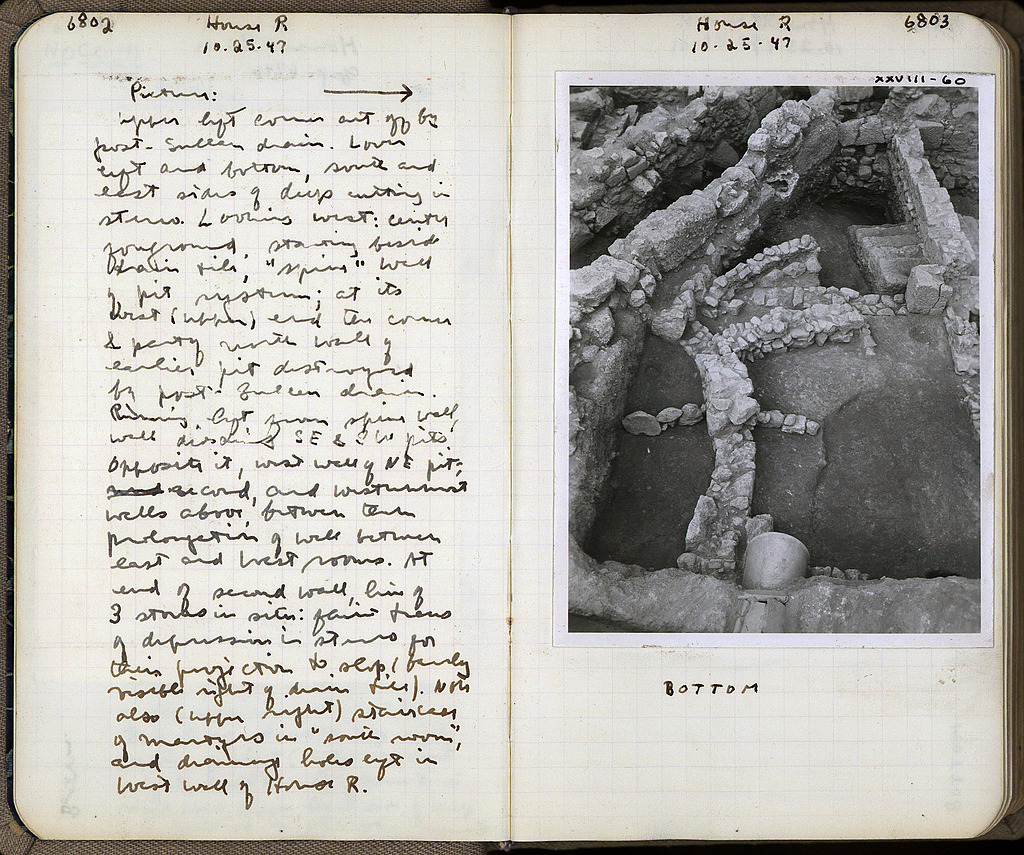 6802
House R
10.25.47
Picture:
upper left corner cut off by
post-Sullan drain. Lower
left and bottom, south and
east sides of deep cutting in
stereo. Looking west: center
foreground, starting beside
drain tile, "spine" wall
of pit system; at its
west (upper) end the corner
& party north wall of
earlier pit destroyed
by post-Sullan drain.
Running left from spine wall,
wall dividing SE & SW pits.
Opposite it, west wall of NE pit;
second, and westernmost
walls above, between them
prolongation of wall between
east and west rooms. At
end of second wall, line of
3 stones in situ: faint traces
of depression in stereo for
this projection to slop (barely
visible right of drain tile). Note
also (upper right) staircase
of martyrs in "south room",
and drainage holes left in
west wall of House R.
House R
6803
10.25.47
XXVIII-60
BOTTOM